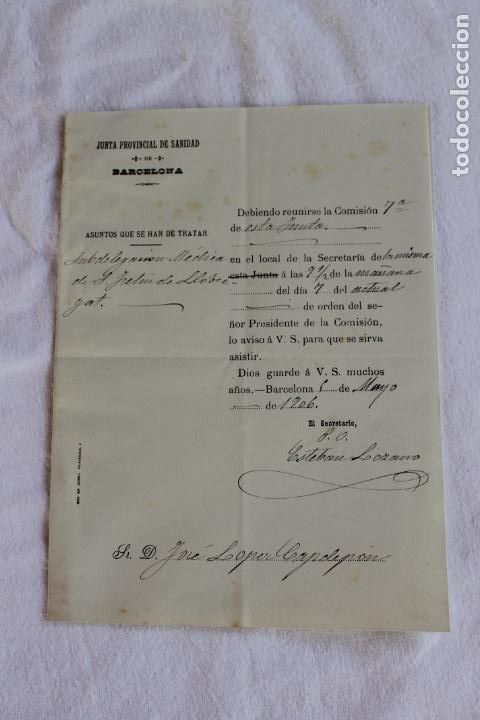 JUNTA PROVINCIAL DE SANIDAD
DE
BARCELONA
ASUNTOS QUE SE HAN DE TRATAR
Subdelegacion Médica
de S. Feliu de Llobre
gat.
Debiendo reunirse la Comisión 7ª
de esta Junta.
en el local de la Secretaría de la misma
esta Junta á las 9 1/2 de la mañana
del día 7 del actual
de orden del se-
ñor Presidente de la Comisión,
lo aviso á V. S. para que se sirva
asistir.
Dios guarde á V. S. muchos
años.—Barcelona de Mayo
de 1906.
El Secretario,
P. O.
Esteban Lozano
Sr. D. José Lopez Capdepon
todocoleccion
todocoleccion.net